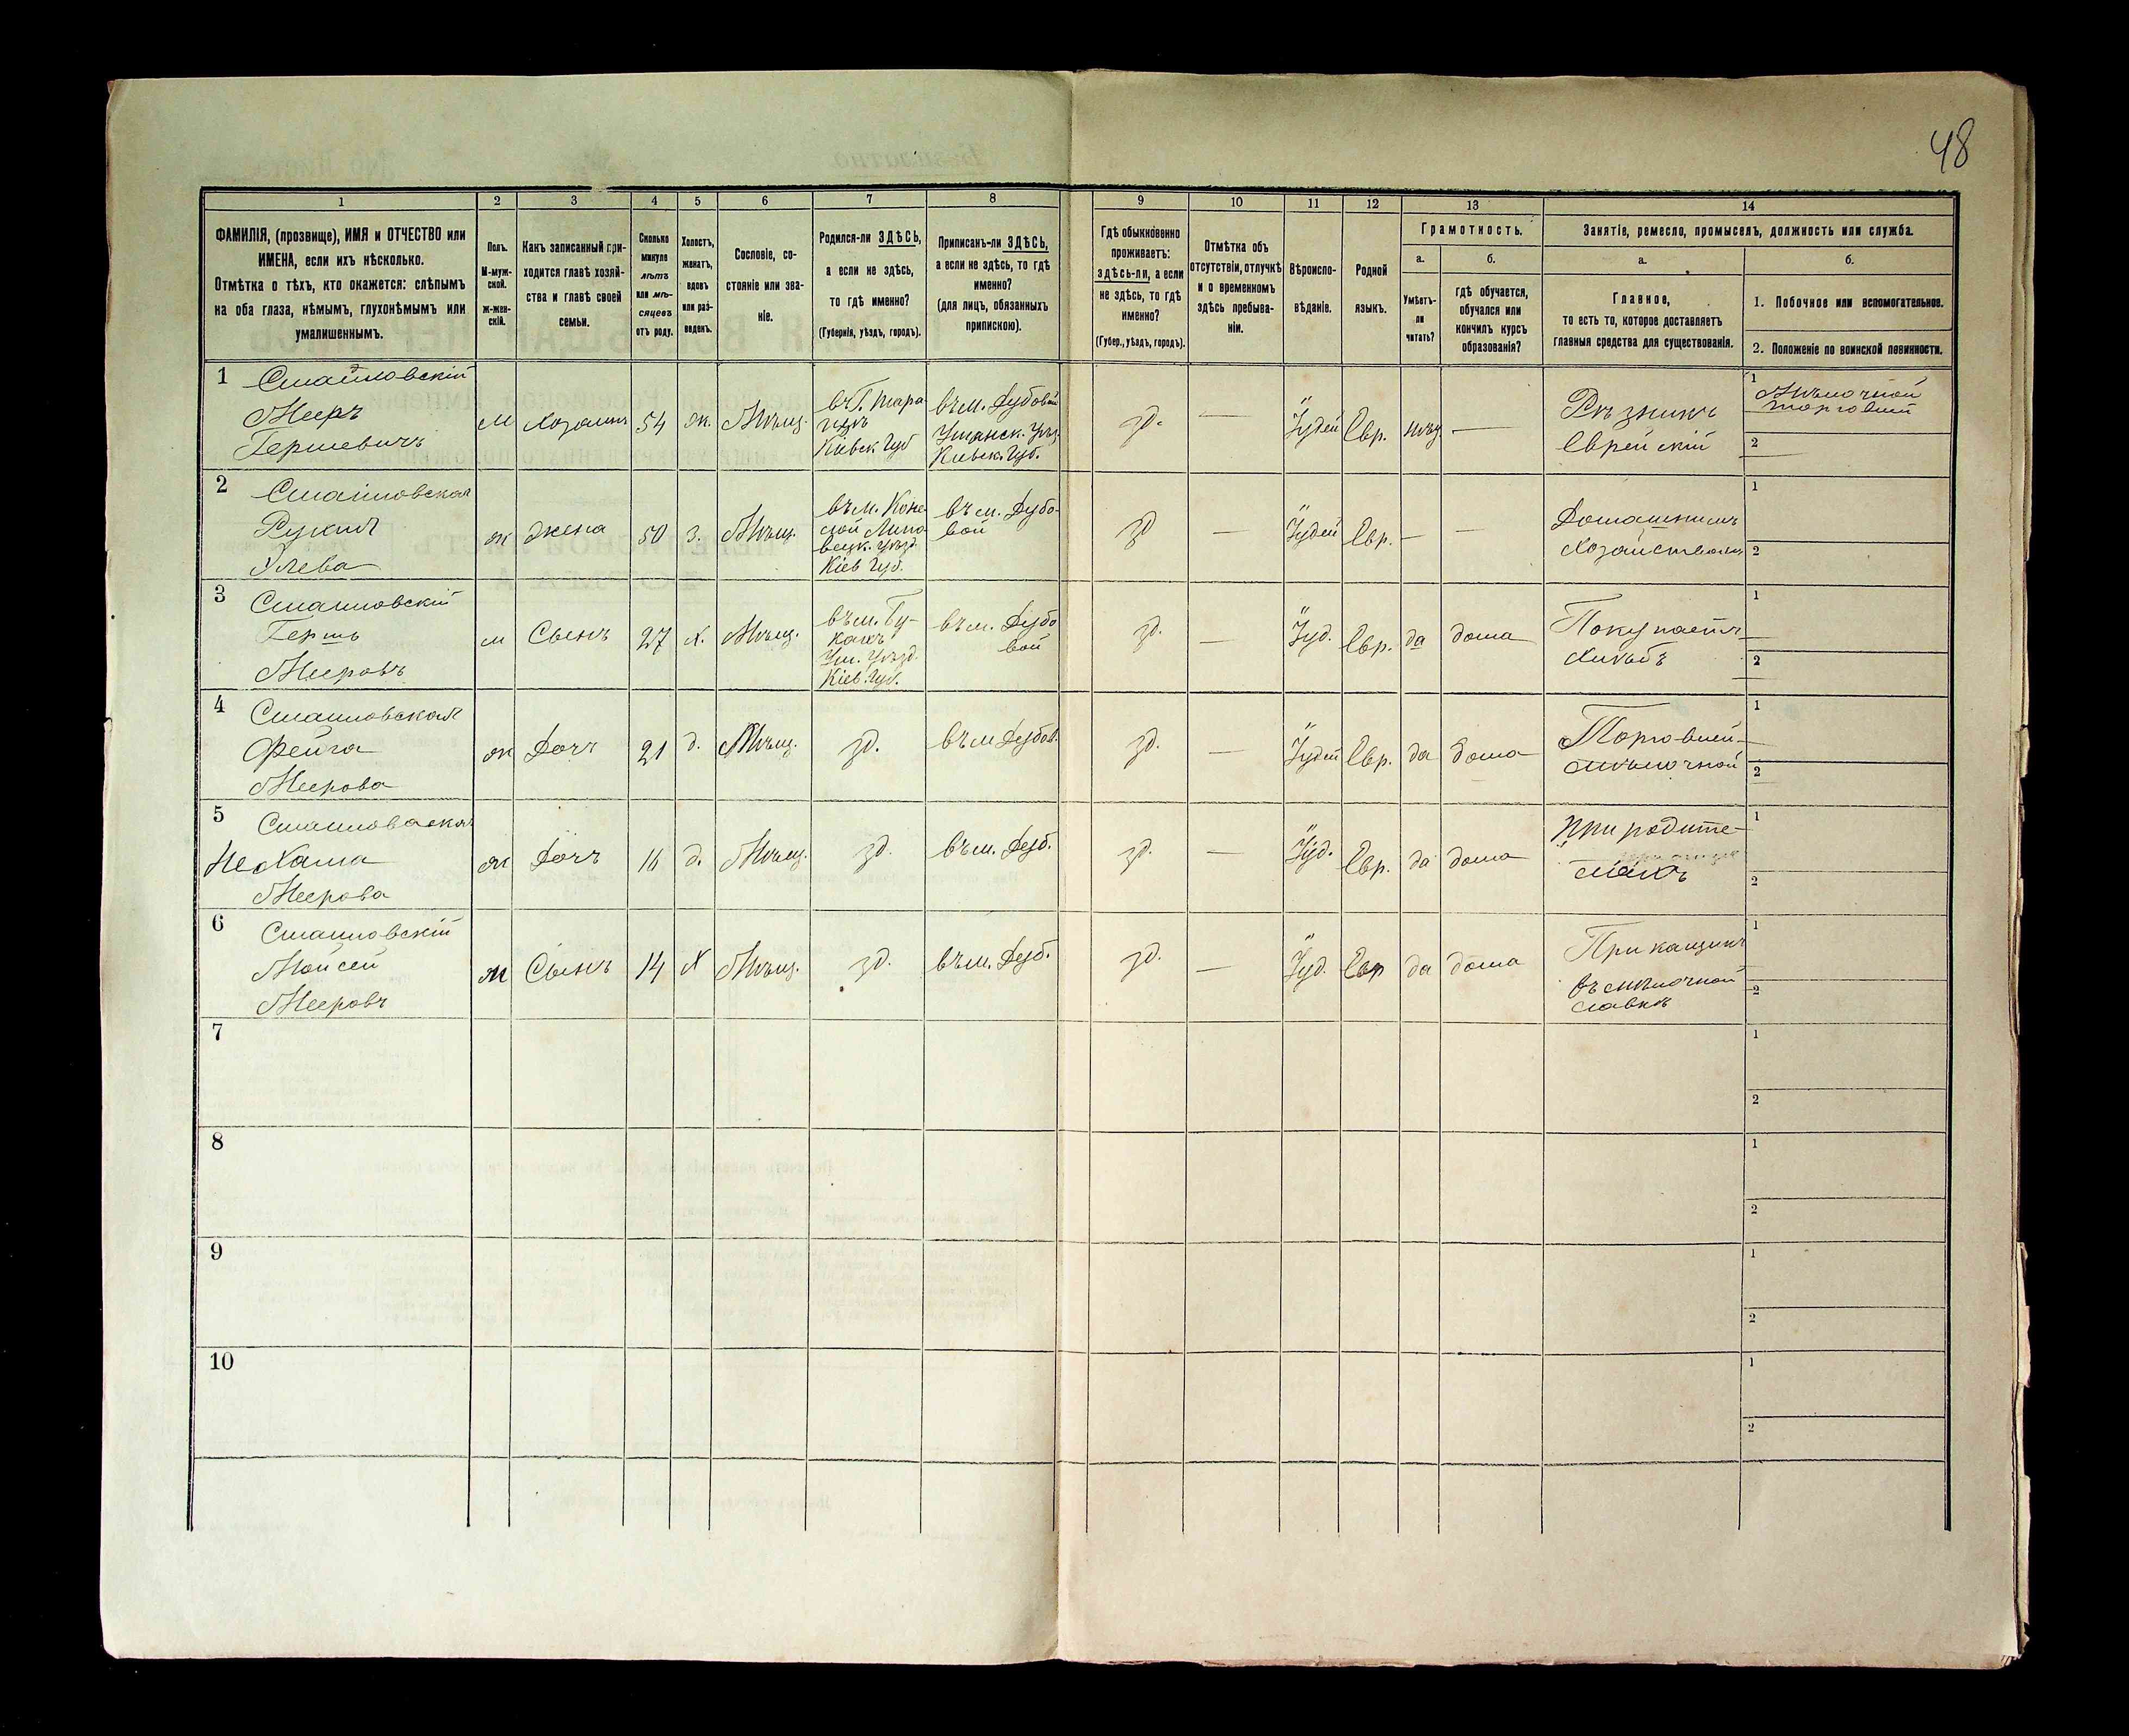 48
1 2 3 4 5 6 7 8 9 10 11 12 13 14
ФАМИЛІЯ, (прозвище), ИМЯ и ОТЧЕСТВО или
ИМЕНА, если ихъ нѣсколько.
Отмѣтка о тѣхъ, кто окажется: слѣпымъ
на оба глаза, нѣмымъ, глухонѣмымъ или
умалишеннымъ.
Полъ.
М-муж-
ской.
ж-жен-
скій.
Какъ записанный при-
ходится главѣ хозяй-
ства и главѣ своей
семьи.
Сколько
минуло
лѣтъ
или мѣ-
сяцевъ
отъ роду.
Холостъ,
женатъ,
вдовъ
или раз-
веденъ.
Сословіе, со-
стояніе или зва-
ніе.
Родился-ли ЗДѢСЬ,
а если не здѣсь,
то гдѣ именно?
(Губернія, уѣздъ, городъ).
Приписанъ-ли ЗДѢСЬ,
а если не здѣсь, то гдѣ
именно?
(для лицъ, обязанныхъ
припискою).
Гдѣ обыкновенно
проживаетъ:
здѣсь-ли, а если
не здѣсь, то гдѣ
именно?
(Губер., уѣздъ, городъ).
Отмѣтка объ
отсутствіи, отлучкѣ
и о временномъ
здѣсь пребыва-
ніи.
Вѣроиспо-
вѣданіе.
Родной
языкъ.
Грамотность.
а.
Умѣетъ-
ли
читать?
б.
гдѣ обучается,
обучался или
кончилъ курсъ
образованія?
Занятіе, ремесло, промыселъ, должность или служба.
а.
Главное,
то есть то, которое доставляетъ
главныя средства для существованія.
б.
1. Побочное или вспомогательное.
2. Положеніе по воинской повинности.
1
Смаиловскій
Мееръ
Гершевичъ
м
хозяинъ
54
ж.
Мѣщ.
въ Г. Тара-
щѣ
Кіевск Губ
въ м. Дубовой
Уманск. Уѣз.
Кіевск. Губ.
зд.
—
Іудей
Евр.
—
Рѣзникъ
Еврейскій
1
Мѣлочной
торговлей
2
2
Смаиловская
Рухля
ж
жена
50
з.
Мѣщ.
въ м. Коне-
лой Липо
вецк. Уѣзд.
Кіев Губ.
въ м. Дубо-
вой
зд
Іудей
Евр.
—
—
Домашнимъ
хозяйствомъ
1
2
3
Смаиловскій
Гершъ
Мееровъ
м
Сынъ
27
х.
Мѣщ.
въ м. Бу-
кахъ
Ум. Уѣзд.
Кіев. Губ.
въ м. Дубо
вой
зд.
—
Іуд.
Евр.
да
дома
Покупаетъ
хлѣбъ
1
2
4
Смаиловская
Фейга
Меерова
ж
Дочь
21
д.
Мѣщ.
зд.
въ м Дубов.
зд.
—
Іудей
Евр.
да
дома
Торговлей
мѣлочной
1
2
5
Смаиловаская
Нехама
Меерова
ж
Дочь
16
д.
Мѣщ.
зд.
въ м. Дуб.
зд.
—
Іуд.
Евр.
да
дома
При родите-
ляхъ
1
2
6
Смаиловскій
Мойсей
Мееровъ
м
Сынъ
14
Х
Мѣщ.
зд.
въ м. Дуб.
зд.
—
Іуд.
Евр
да
дома
Прикащикъ
въ мѣлочной
лавкѣ
1
2
7
1
2
8
1
2
9
1
2
10
1
2